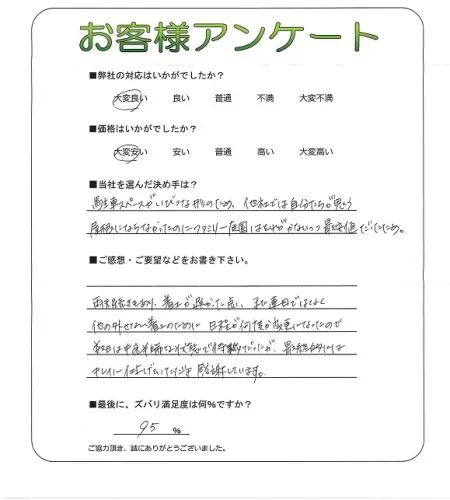 お客様アンケート
■弊社の対応はいかがでしたか？
大変良い 良い 普通 不満 大変不満
■価格はいかがでしたか？
大変安い 安い 普通 高い 大変高い
■当社を選んだ決め手は？
駐車スペースがいびつな形のため、他社では自分たちが思う
屋根にならなかったのにファミリー庭園は だったため。
■ご感想・ご要望などをお書き下さい。
雨天続きもあり、着工が遅かった点、また連日ではなく
他の外せない着工のために日程が何度か変更になったので
状態で だったが、最終的には
キレイに仕上げていただき感謝しています。
■最後に、ズバリ満足度は何%ですか？
95 %
ご協力頂き、誠にありがとうございました。